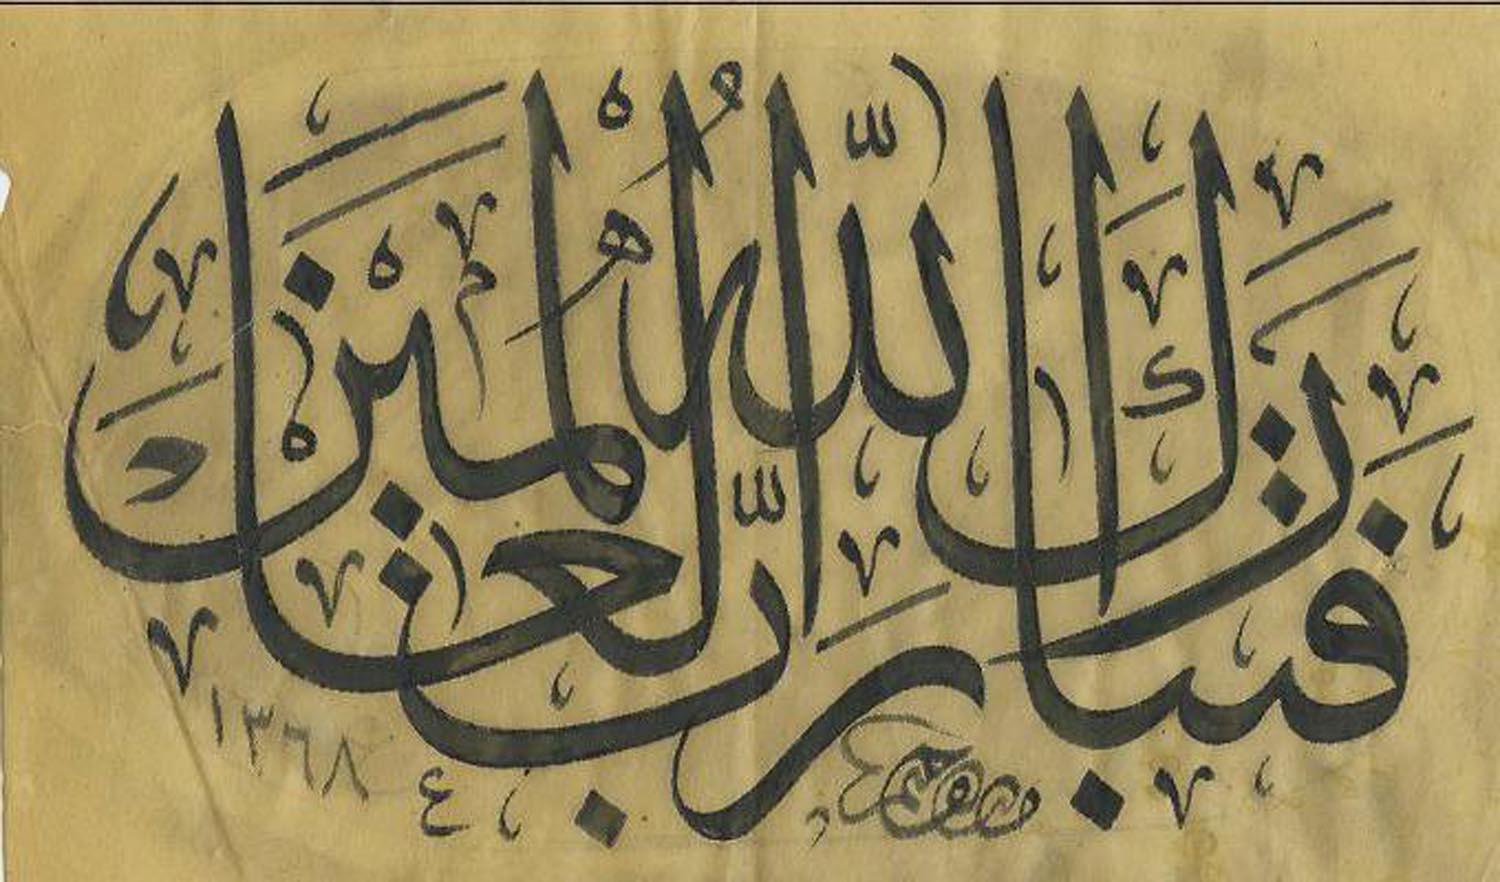 فَتَبَارَكَ اللّٰهُ رَبُّ الْعَالَمِينَ
١٣٦٨